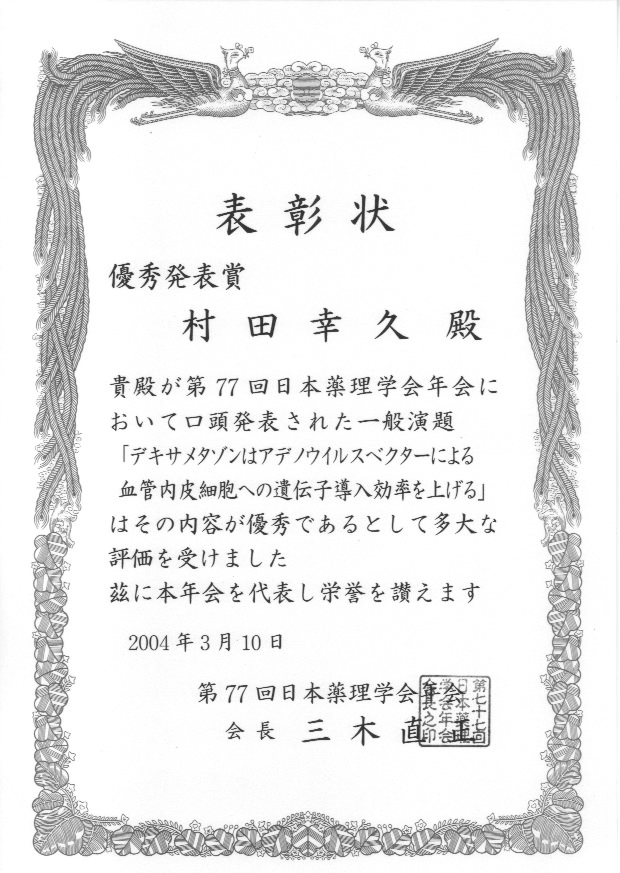 表彰状
優秀発表賞
村田幸久殿
貴殿が第77回日本薬理学会年会に
おいて口頭発表された一般演題
「デキサメタゾンはアデノウイルスベクターによる
血管内皮細胞への遺伝子導入効率を上げる」
はその内容が優秀であるとして多大な
評価を受けました
茲に本年会を代表し栄誉を讃えます
2004年3月10日
第77回日本薬理学会年会
会長 三木直正
第七十七回
日本薬理
学会年会
会長之印